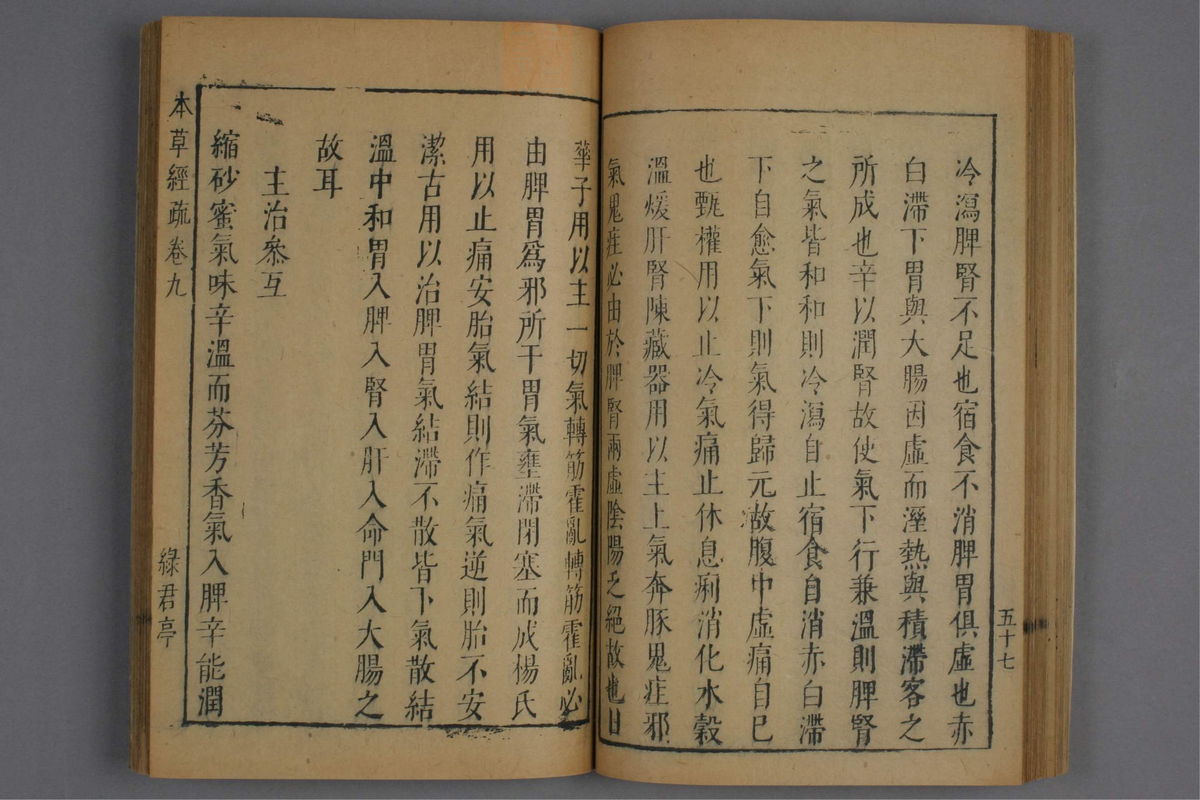 冷瀉脾腎不足也宿食不消脾胃俱虛也赤
白滯下胃與大腸因虛而溼熱與積滯客之
所成也辛以潤腎故使氣下行兼溫則脾腎
之氣皆和和則冷瀉自止宿食自消赤白滯
下自愈氣下則氣得歸元故腹中虛痛自已
也甄權用以止冷氣痛止休息痢消化水穀
溫煖肝腎陳藏器用以主上氣奔豚鬼疰邪
氣鬼疰必由於脾腎兩虛陰陽乏絕故也日
五十七
華子用以主一切氣轉筋霍亂轉筋霍亂必
由脾胃爲邪所干胃氣壅滯閉塞而成楊氏
用以止痛安胎氣結則作痛氣逆則胎不安
潔古用以治脾胃氣結滯不散皆下氣散結
溫中和胃入脾入腎入肝入命門入大腸之
故耳
主治叅互
縮砂蜜氣味辛溫而芬芳香氣入脾辛能潤
本草經疏卷九
綠君亭